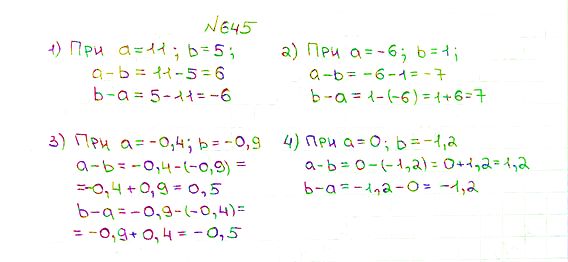 №645
1) При a=11; b=5;
a-b=11-5=6
b-a=5-11=-6
2) При a=-6; b=1;
a-b=-6-1=-7
b-a=1-(-6)=1+6=7
3) При a=-0,4; b=-0,9
a-b=-0,4-(-0,9)=
=-0,4+0,9=0,5
b-a=-0,9-(-0,4)=
=-0,9+0,4=-0,5
4) При a=0; b=-1,2
a-b=0-(-1,2)=0+1,2=1,2
b-a=-1,2-0=-1,2